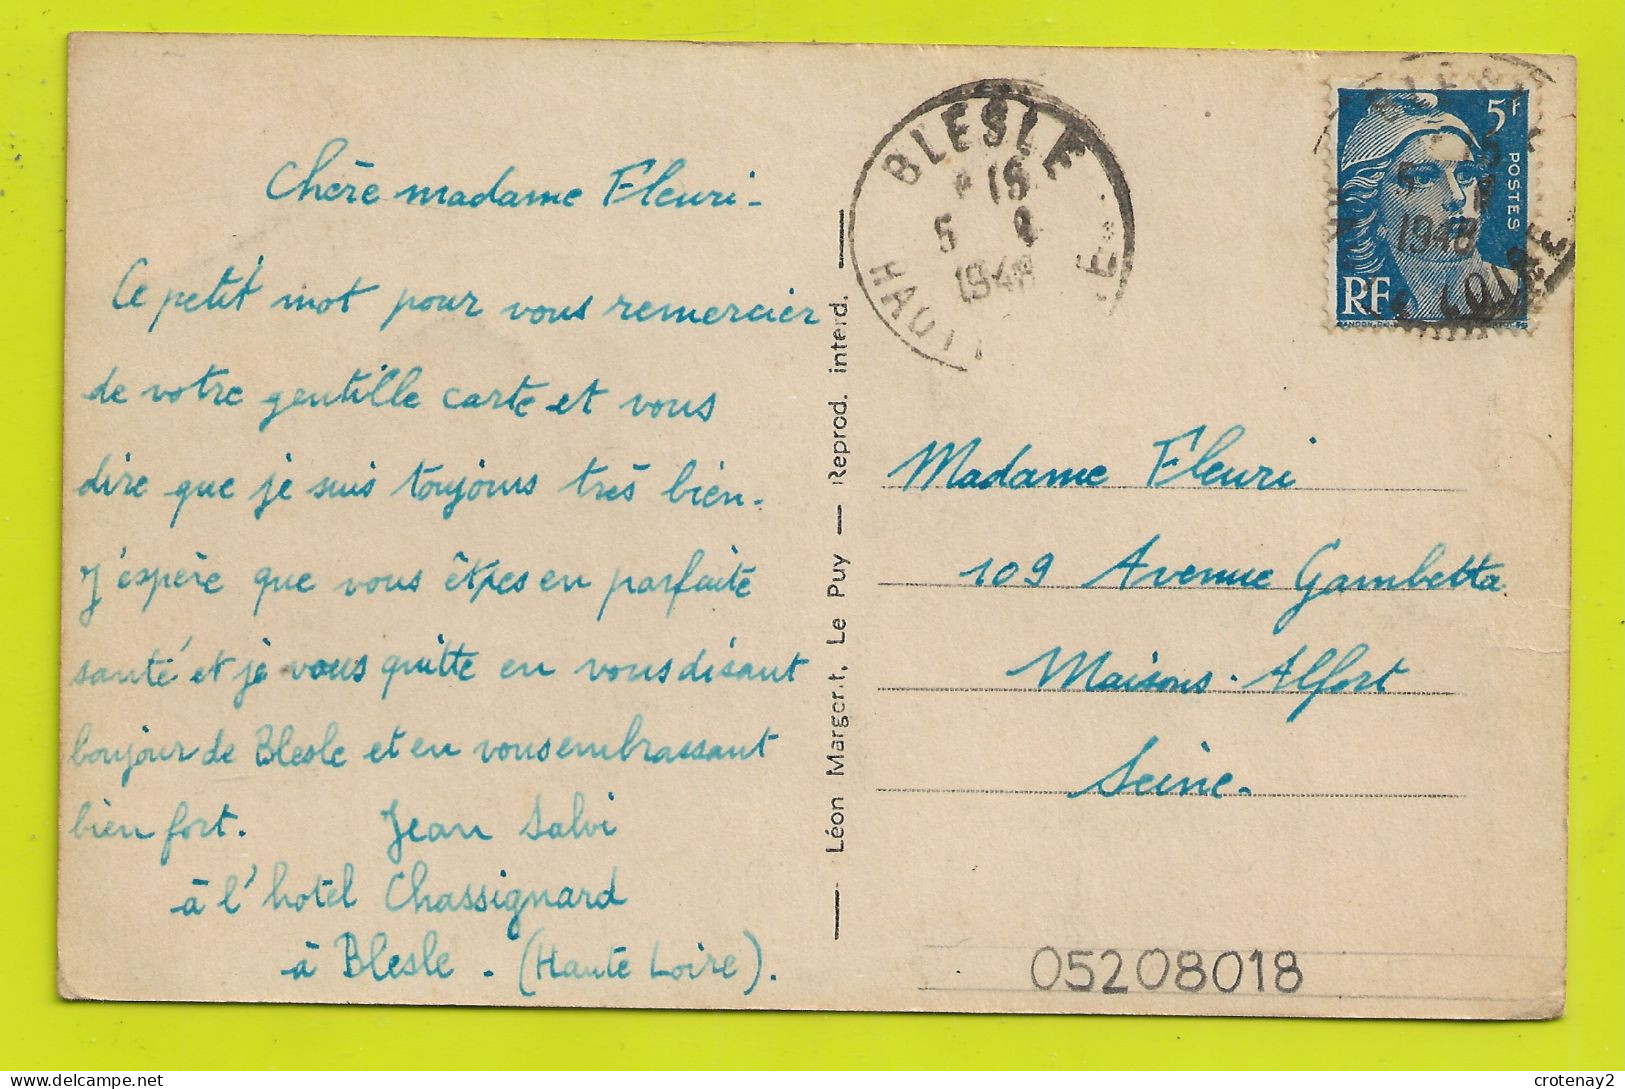 Chère madame Fleuri -
Ce petit mot pour vous remercier
de votre gentille carte et vous
dire que je suis toujours très bien.
J'espère que vous êtes en parfaite
santé et je vous quitte en vous disant
bonjour de Blesle et en vous embrassant
bien fort. Jean Salvi
à l'hotel Chassignard
à Blesle - (Haute Loire).
Léon Margerit, Le Puy — Reprod. interd.
BLESLE
15
5 8
194
HAUT E
5f
POSTES
RF
5
1948
LOIRE
Madame Fleuri
109 Avenue Gambetta
Maisons-Alfort
Seine-
05208018
crotenay2